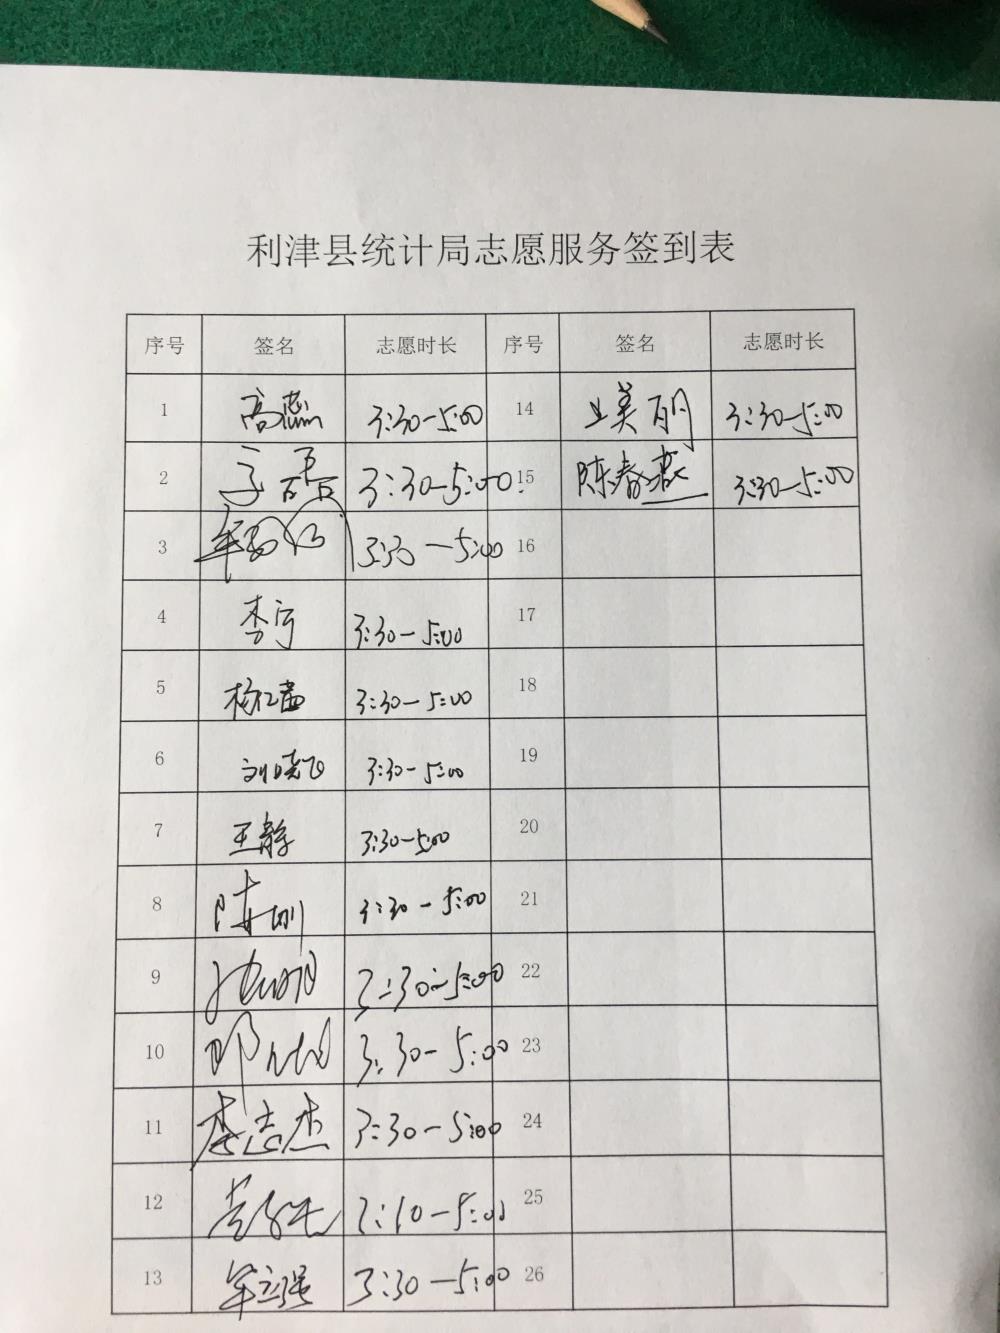 利津县统计局志愿服务签到表
序号 签名 志愿时长 序号 签名 志愿时长
1 高蕊 3:30-5:00 14 美丽 3:30-5:00
2 3:30-5:00 15 陈春燕 3:30-5:00
3 3:30-5:00 16
4 李宁 3:30-5:00 17
5 杨 3:30-5:00 18
6 刘晓飞 3:30-5:00 19
7 王静 3:30-5:00 20
8 陈刚 3:30-5:00 21
9 3:30-5:00 22
10 邓 3:30-5:00 23
11 李志杰 3:30-5:00 24
12 3:10-5:00 25
13 牟立强 3:30-5:00 26